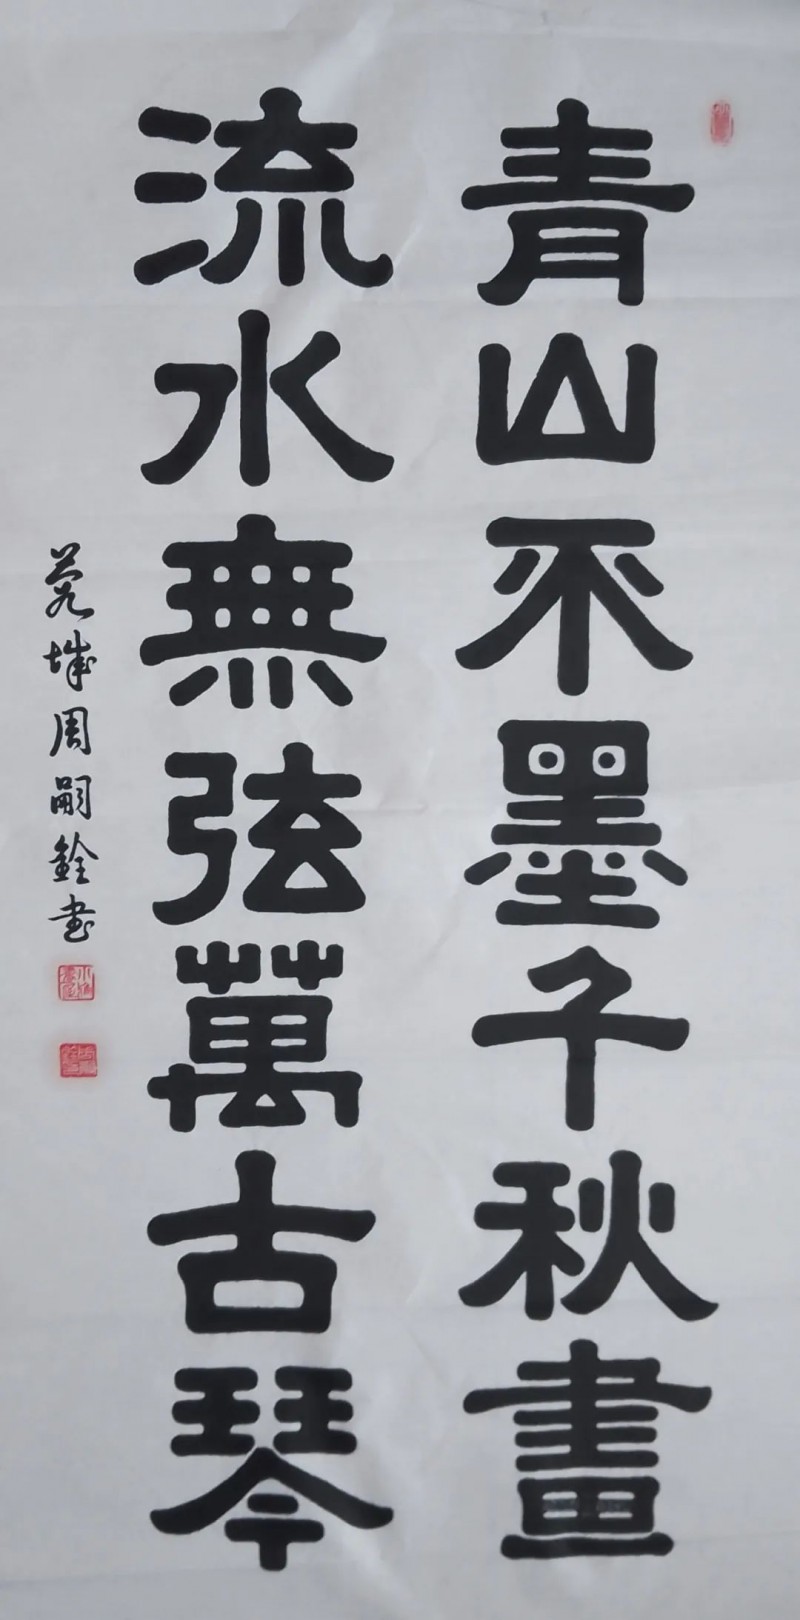 青山不墨千秋畫
流水無弦萬古琴
苑城周嗣銓书